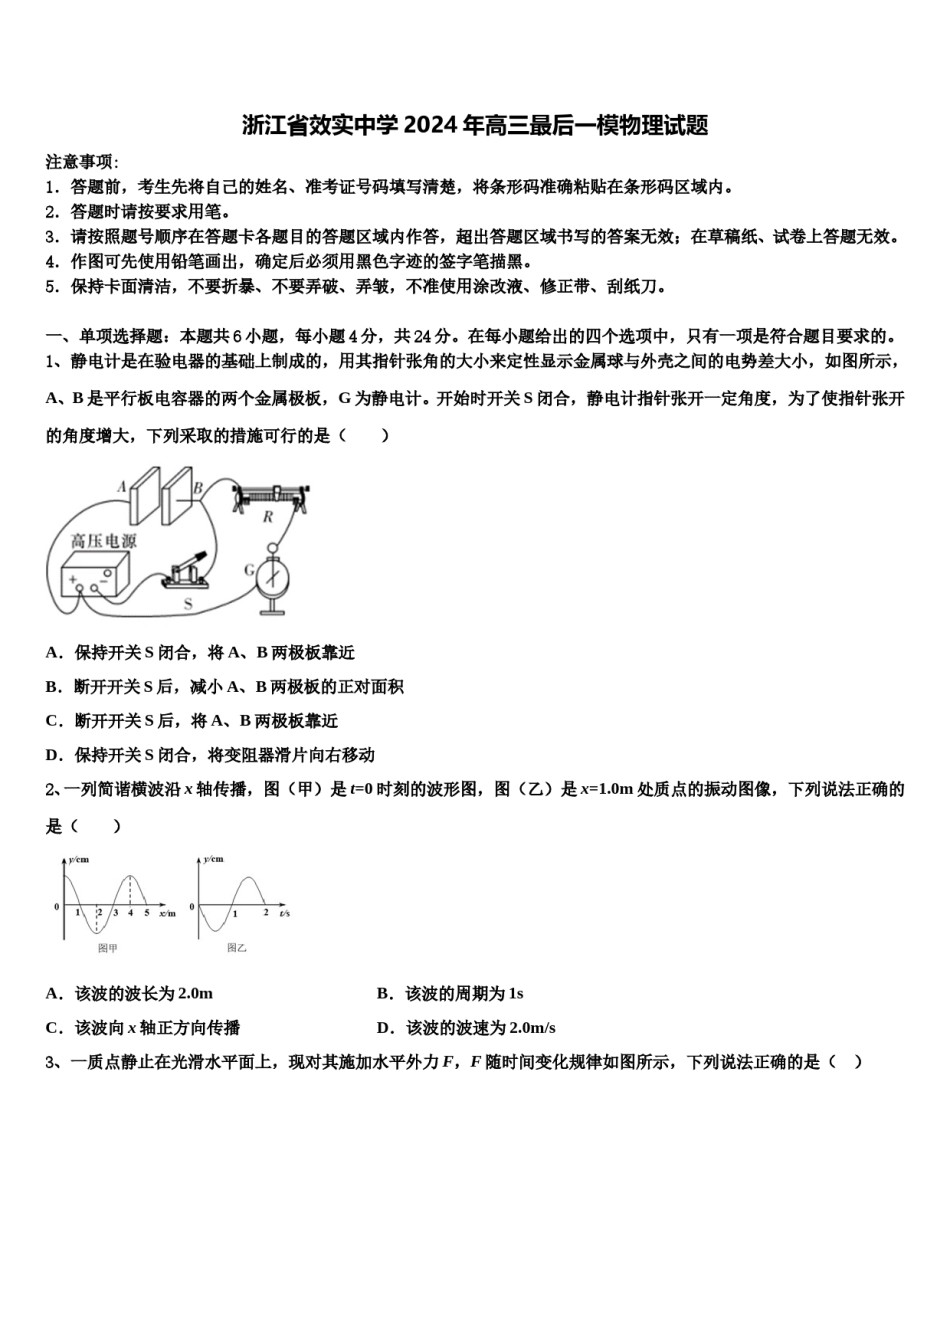 浙江省效实中学 2024 年高三最后一模物理试题
注意事项:
1．答题前，考生先将自己的姓名、准考证号码填写清楚，将条形码准确粘贴在条形码区域内。
2．答题时请按要求用笔。
3．请按照题号顺序在答题卡各题目的答题区域内作答，超出答题区域书写的答案无效；在草稿纸、试卷上答题无效。
4．作图可先使用铅笔画出，确定后必须用黑色字迹的签字笔描黑。
5．保持卡面清洁，不要折暴、不要弄破、弄皱，不准使用涂改液、修正带、刮纸刀。
一、单项选择题：本题共 6 小题，每小题 4 分，共 24 分。在每小题给出的四个选项中，只有一项是符合题目要求的。
1、静电计是在验电器的基础上制成的，用其指针张角的大小来定性显示金属球与外壳之间的电势差大小，如图所示，
A、B 是平行板电容器的两个金属极板，G 为静电计。开始时开关 S 闭合，静电计指针张开一定角度，为了使指针张开
的角度增大，下列采取的措施可行的是（　　）
A B
R
高压电源
G
+ −
S
A．保持开关 S 闭合，将 A、B 两极板靠近
B．断开开关 S 后，减小 A、B 两极板的正对面积
C．断开开关 S 后，将 A、B 两极板靠近
D．保持开关 S 闭合，将变阻器滑片向右移动
2、一列简谐横波沿 x 轴传播，图（甲）是 t=0 时刻的波形图，图（乙）是 x=1.0m 处质点的振动图像，下列说法正确的
是（　　）
y/cm y/cm
0 1 2 3 4 5 x/m 0 1 2 t/s
图甲 图乙
A．该波的波长为 2.0m B．该波的周期为 1s
C．该波向 x 轴正方向传播 D．该波的波速为 2.0m/s
3、一质点静止在光滑水平面上，现对其施加水平外力 F，F 随时间变化规律如图所示，下列说法正确的是（　）